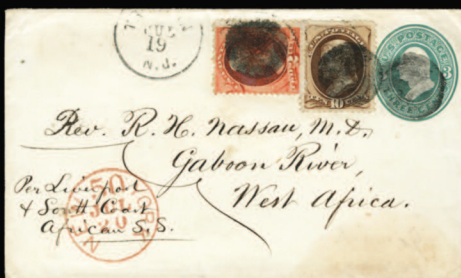 JUL
19
N.J.
U.S. POSTAGE
3
10
Rev. R. H. Nassau, M.D.
Gaboon River,
West Africa.
Per Liverpool
& South Coast
African S.S.
50
JUL
20